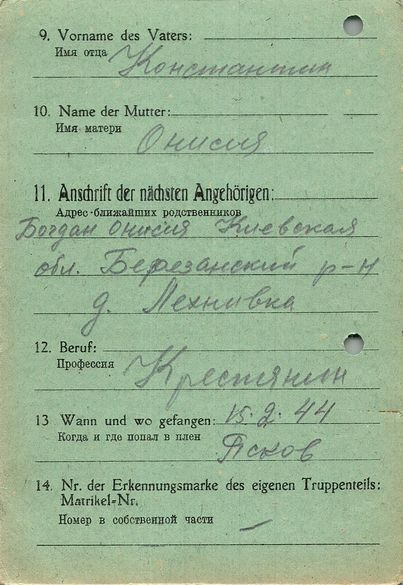 9. Vorname des Vaters:
Имя отца
Константин
10. Name der Mutter:
Имя матери
Онисия
11. Anschrift der nächsten Angehörigen:
Адрес ближайших родственников
Богдан Онисия Киевская
обл. Березанский р-н
д. Лехнивка
12. Beruf:
Профессия
Крестянин
13 Wann und wo gefangen: 15.2.44
Когда и где попал в плен
Псков
14. Nr. der Erkennungsmarke des eigenen Truppenteils:
Matrikel-Nr.
Номер в собственной части
–